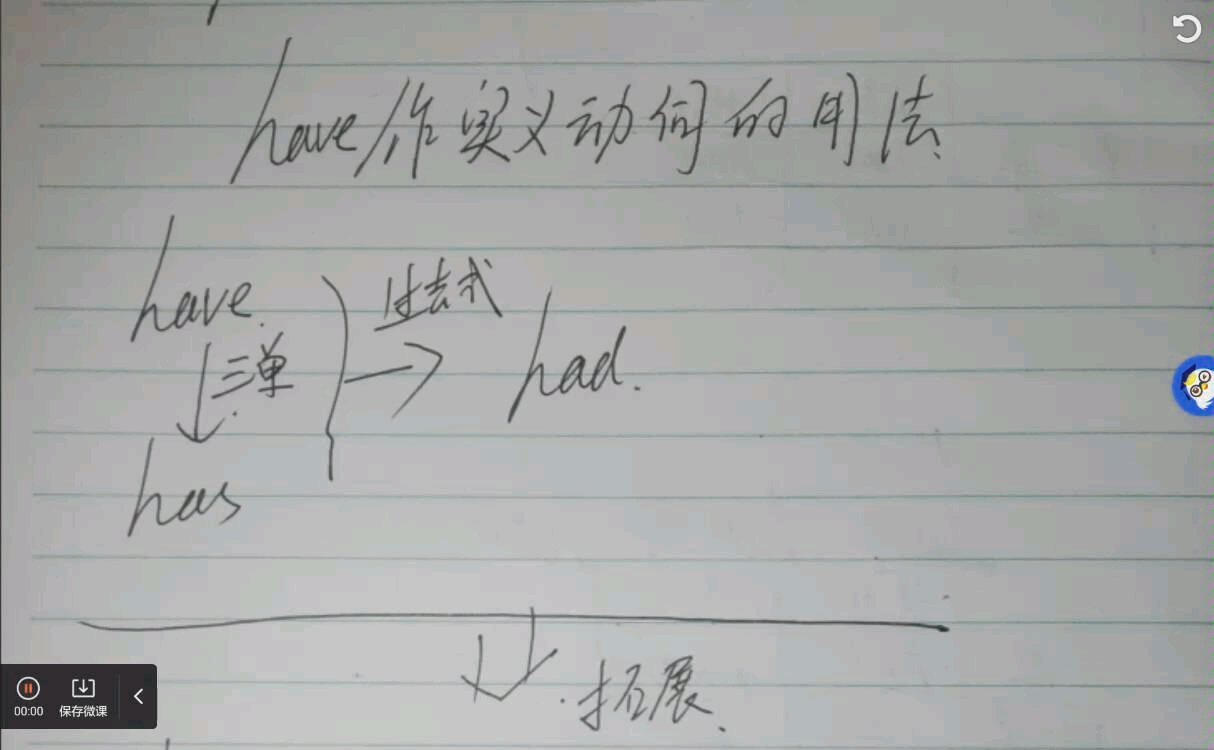 have作实义动词的用法.
have.
过去式
三单
had.
has
拓展.
00:00 保存微课